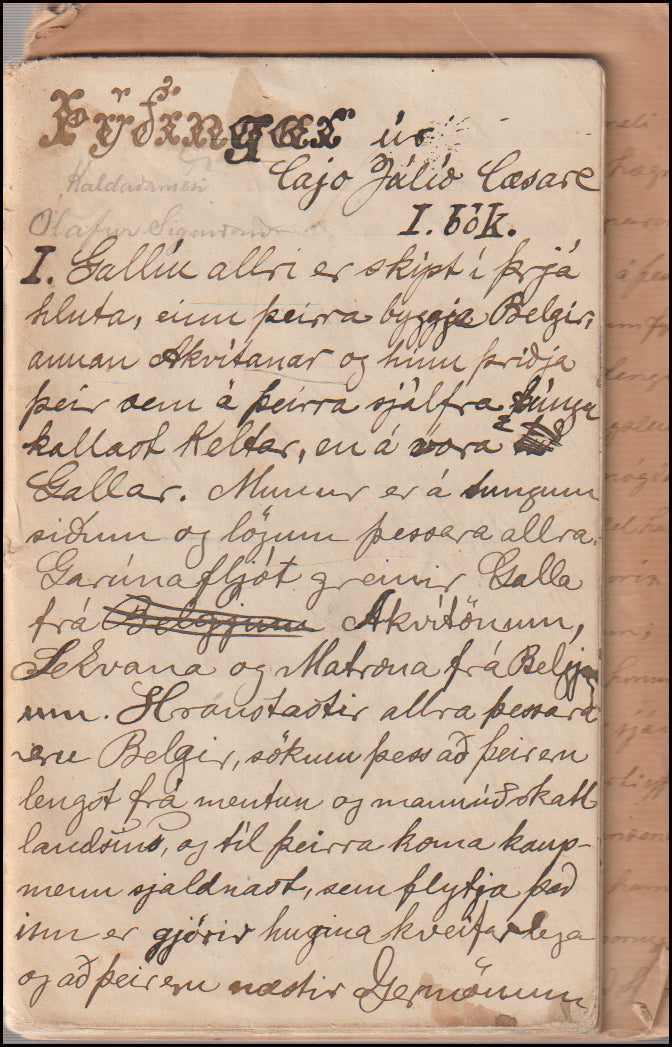 Þýðingar úr
Cajo Júlío Cæsare
Kaldaðarnesi
Ólafur Sigurðsson
I. bók.
I. Gallíu allri er skipt í þrjá
hluta, einn þeirra byggja Belgir,
annan Akvítanar og hinn þriðja
þeir sem á þeirra sjálfra túngu
kallast Keltar, en á vora
Gallar. Munur er á tungum
siðum og lögum þessara allra.
Garúnafljót greinir Galla
frá Belgjum Akvítönum,
Sekvana og Matrona frá Belgj
um. Hraustastir allra þessara
eru Belgir, sökum þess að þeir eru
lengst frá mentun og mannúð skatt
landsins, og til þeirra koma kaup-
menn sjaldnast, sem flytja það
inn er gjörir hugina kveifarlega
og að þeir eru næstir Germönum